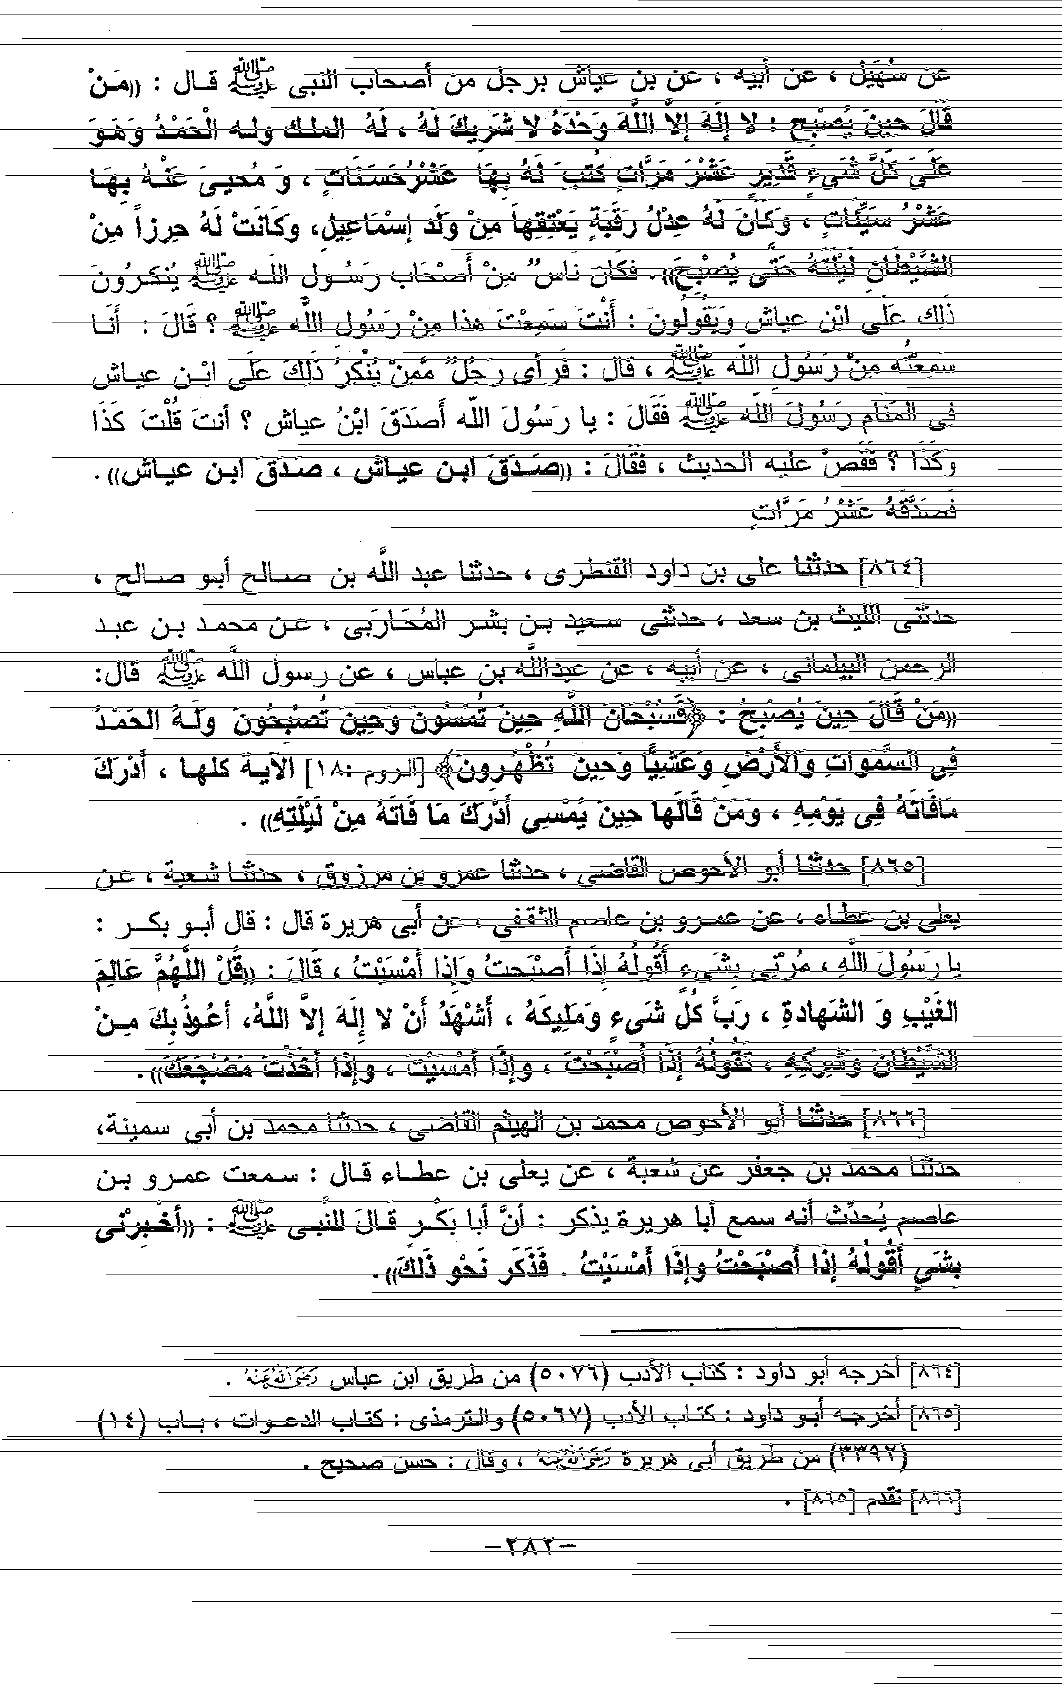 عن سُهَيْل ، عن أبيه ، عن بن عياش برجل من أصحاب النبى ﷺ قال : «مَنْ
قَالَ حِينَ يُصْبِحِ : لا إِلَهَ إِلاَّ اللَّهَ وَحْدَهُ لا شَرِيكَ لَهُ ، لَهُ الملك وله الْحَمْدُ وَهَوَ
عَلَىَ كَلَّ شَىءٍ قَدِيرٍ عَشْرَ مَرَّاتٍ كُتبَ لَهُ بِهَا عَشْرُحَسَنَاتٍ ، وَ مُحيىَ عَنْهُ بِهَا
عَشْرُ سَيِّئَاتٍ ، وَكَانَ لَهُ عِدْلُ رقَبَةٍ يَعْتِقِهاَ مِنْ وَلَد إسْمَاعِيلِ، وكَانَتْ لَهُ حرزاً مِنْ
الشَّيْطَانِ لَيْلَتَهُ حَتَّى يُصْبِحَ». فكَانَ نَاسٌ مِنْ أَصْحَاب رَسُول اللَّه ﷺ يُنكرُونَ
ذَلِكَ عَلَى ابْن عياش وَيَقُولُونَ : أَنْتَ سَمِعْتَ هذا مِنْ رَسُول اللَّه ﷺ ؟ قَالَ : أَنَا
سَمِعْتُه مِنْ رَسُولِ اللَّه ﷺ ، قال : فَرأى رَجُلٌ ممَّنْ يُنْكرُ ذَلكَ عَلَى ابْن عياش
فى المَنَام رَسُولَ اللَّه ﷺ فَقَالَ : يا رَسُولَ اللَّه أصَدَقَ ابْنُ عياش ؟ أنتَ قُلْتَ كَذَا
وكَذَا ؟ فَقَصَّ عليه الحديث ، فقَالَ : «صَدَقَ ابن عياش ، صَدَقَ ابن عياش» .
فَصَدَّقَهُ عَشْرُ مَرَّاتٍ
[٨٦٤] حدثنا على بن داود القنطرى ، حدثنا عبد اللَّه بن صالح أبو صالح ،
حدثنى الليث بن سعد ، حدثنى سعيد بن بشر المُحَاربى ، عن محمد بن عبد
الرحمن البيلمانى ، عن أبيه ، عن عبداللَّه بن عباس ، عن رسول اللَّه ﷺ قال:
«مَنْ قَالَ حِينَ يُصْبحُ : ﴿فَسُبْحَانَ اللَّهِ حِينَ تُمْسُون وَحِينَ تُصْبحُونَ ولَهُ الحَمْدُ
فِى السَّموَاتِ والأَرْضِ وَعَشيًّا وَحِينَ تُظْهِرونَ﴾ [الروم :١٨] الآية كلها ، أدْرَكَ
مَافَاتَهُ فِى يَوْمِهِ ، وَمَنْ قَالَها حِينَ يُمْسِى أَدْرَكَ مَا فَاتَهُ مِنْ لَيْلَتِهِ» .
[٨٦٥] حدثنا أبو الأحوص القاضى ، حدثنا عمرو بن مرزوق ، حدثنا شعبة ، عن
يعلى بن عطاء ، عن عمرو بن عاصم الثقفى ، عن أبى هريرة قال : قال أبو بكر :
يا رَسُولَ اللَّهِ ، مُرْنِى بِشَىءٍ أَقُولُهُ إذَا أصْبَحتُ وَإذا أمْسَيْتُ ، قَالَ : «قُلْ اللَّهُمَّ عَالِمَ
الغَيْبِ وَ الشَهادةِ ، رَبَّ كُلِّ شَىءٍ وَمَلِيكَهُ ، أَشْهَدُ أَنْ لا إِلَهَ إِلاَّ اللَّهُ، أعُوذُ بِكَ مِنْ
الشَّيْطَانَ وَشِركِهِ ، تقُولُهُ إذَا أصْبَحْتَ ، وإِذَا أمْسَيْتَ ، وإذَا أخَذْتَ مَضْجَعَكَ» .
[٨٦٦] حدثنا أبو الأحوص محمد بن الهيثم القاضى ، حدثنا محمد بن أبى سمينة،
حدثنا محمد بن جعفر عن شعبة ، عن يعلى بن عطاء قال : سمعت عمرو بن
عاصم يُحدِّث أنه سمع أبا هريرة يذكر : أنَّ أبا بَكْر قالَ للنَّبى ﷺ : «أخْبِرْنى
بِشَىءٍ أَقُولُهُ إذَا أصْبَحْتُ وإذَا أمْسَيْتُ . فَذَكَر نَحْو ذَلكَ».
[٨٦٤] أخرجه أبو داود : كتاب الأدب (٥٠٧٦) من طريق ابن عباس رضى الله عنه .
[٨٦٥] أخرجه أبو داود : كتاب الأدب (٥٠٦٧) والترمذى : كتاب الدعوات ، باب (١٤)
(٣٣٩٢) من طريق أبى هريرة رضى الله عنه ، وقال : حسن صحيح .
[٨٦٦] تقدم [٨٦٥] .
-٢٨٢-